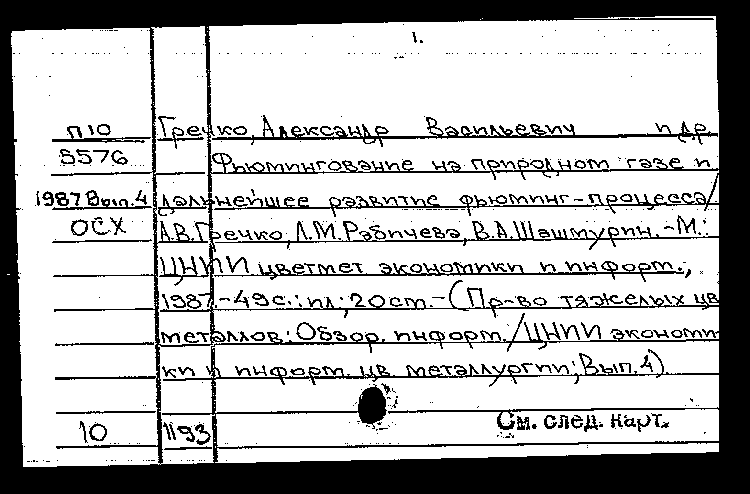 1.
П10 Гречко, Александр Васильевич и др.
5576 Фьюмингование на природном газе и
1987 Вып.4 дальнейшее развитие фьюминг-процесса/
ОСХ А.В.Гречко, Л.М.Рабичева, В.А.Шашмурин.-М.:
ЦНИИ цветмет экономики и информ.,
1987.-49с.:ил; 20см.-(Пр-во тяжелых цв
металлов: Обзор. информ./ЦНИИ экономи
ки и информ. цв. металлургии; Вып.4)
10 1193 См. след. карт.